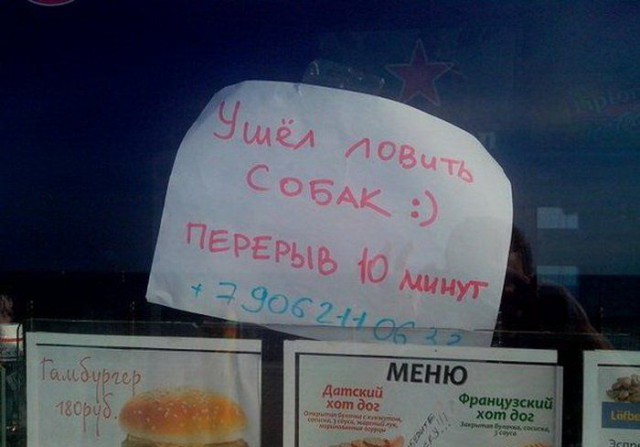 Ушёл ловить
СОБАК :)
ПЕРЕРЫВ 10 минут
+79062110632
Гамбургер
180руб.
МЕНЮ
Датский
хот дог
Французский
хот дог
Закрытая булочка, сосиска,
Löfbe